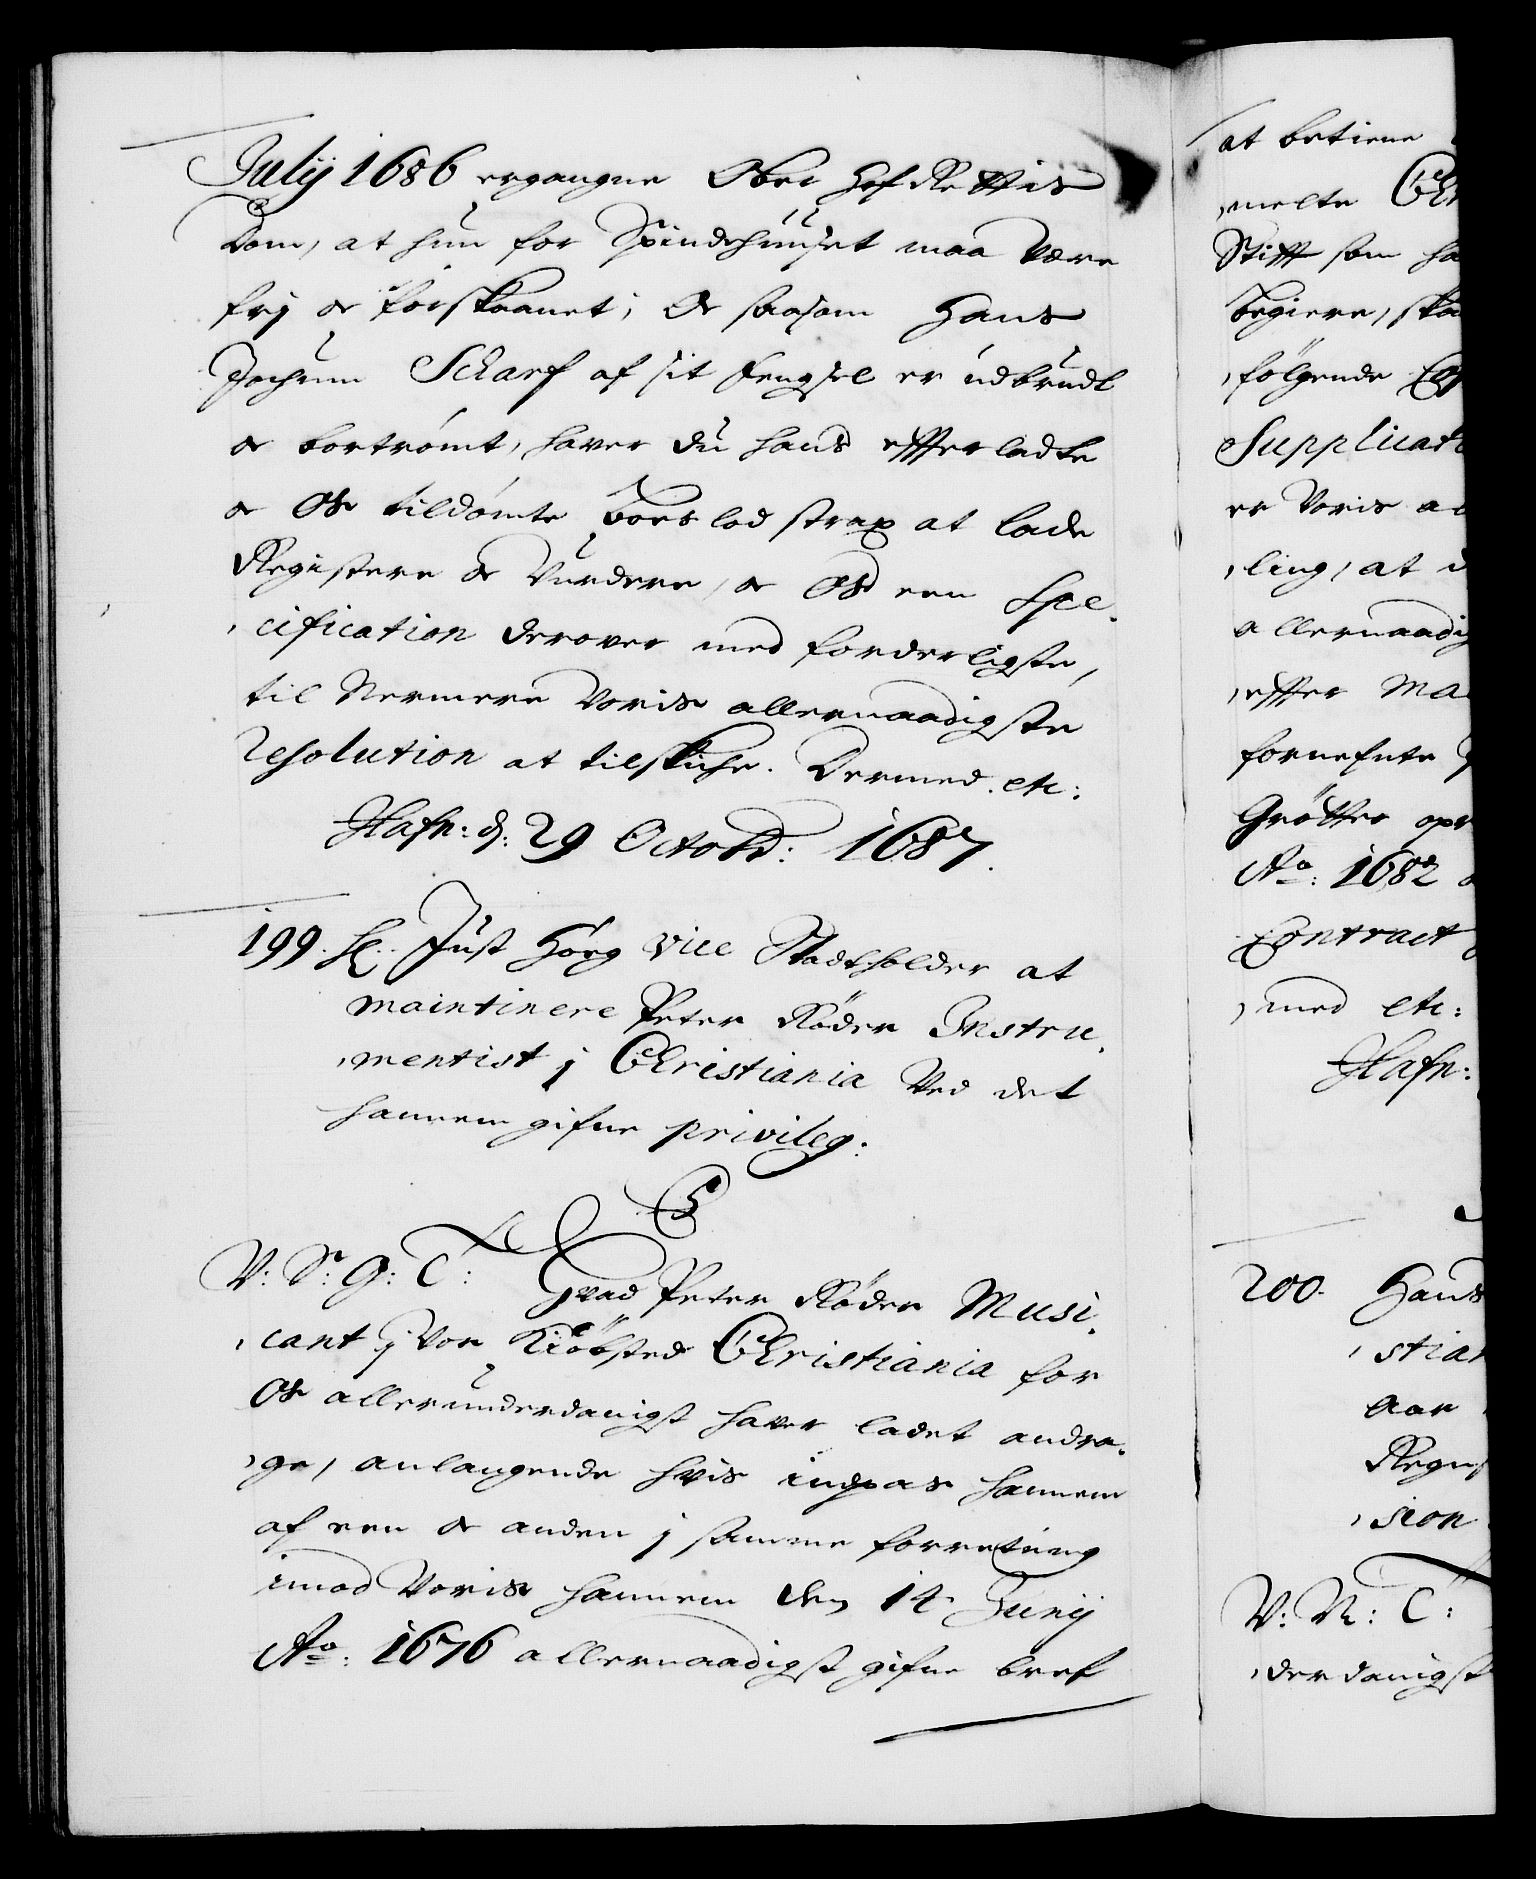 Julij 1686 ergangne Ober Hof Rettis
Dom, at hun for Spindehuuset maa være
frij oc forskaanet; Oc saasom Hans
Jochum Scharf af sit Fengsel er udbrudt
oc bortrømt, haver du hans efterladte
oc Os tildømte Boeslod strax at lade
Registere oc Vurdere, oc Os een Spe,
,cification derover med forderligste,
til Nermere Voris allernaadigste
Resolution at tilskiche. Dermed. etc:
Hafn: d: 29 Octobr: 1687.
199. Hr. Just Høeg Vice Stadtholder at
maintinere Peter Røder Instru,
,mentist j Christiania Ved det
hannem gifne privileg:
C5
V: S: G: T: Hvad Peter Røder Musi,
,cant j Vor Kiøbsted Christiania for
Os allerunderdanigst haver ladet andra,
,ge, anlangende hvis indpas hannem
af een oc anden j samme forretning
imod Voris hannem den 14 Junij
Ao: 1676 allernaadigst gifne bref
at betiene
,melte
Stift som
begiere,
,følgende
er Voris
,ling, at
allernaadig
,efter
fornefnte
Grøtter
Ao: 1682
Contract
,med etc:
Hafn:
200. Hans
,stian
Aar
,sion
V: N: T:
,derdanigst